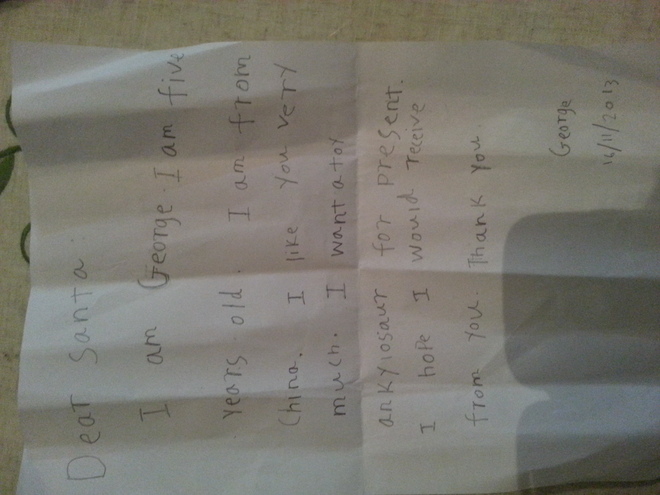 Dear Santa:
I am George. I am five
years old. I am from
China. I like you very
much. I want a toy
ankylosaur for present.
I hope I would receive
from you. Thank you.
George
16/11/2013